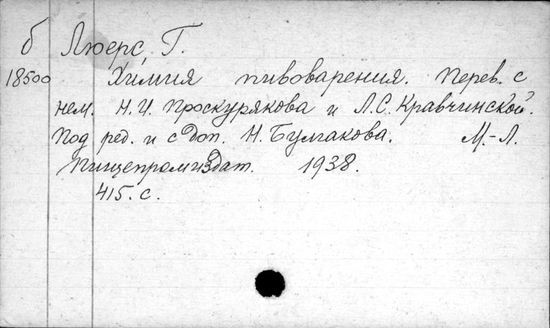 б Люерс, Г.
18500 Химия пивоварения. Перев. с
нем. Н.И. Проскурякова и Л.С. Кравчинской.
Под ред. и с доп. Н. Булгакова. М.-Л.
Пищепромиздат. 1938.
415. с.